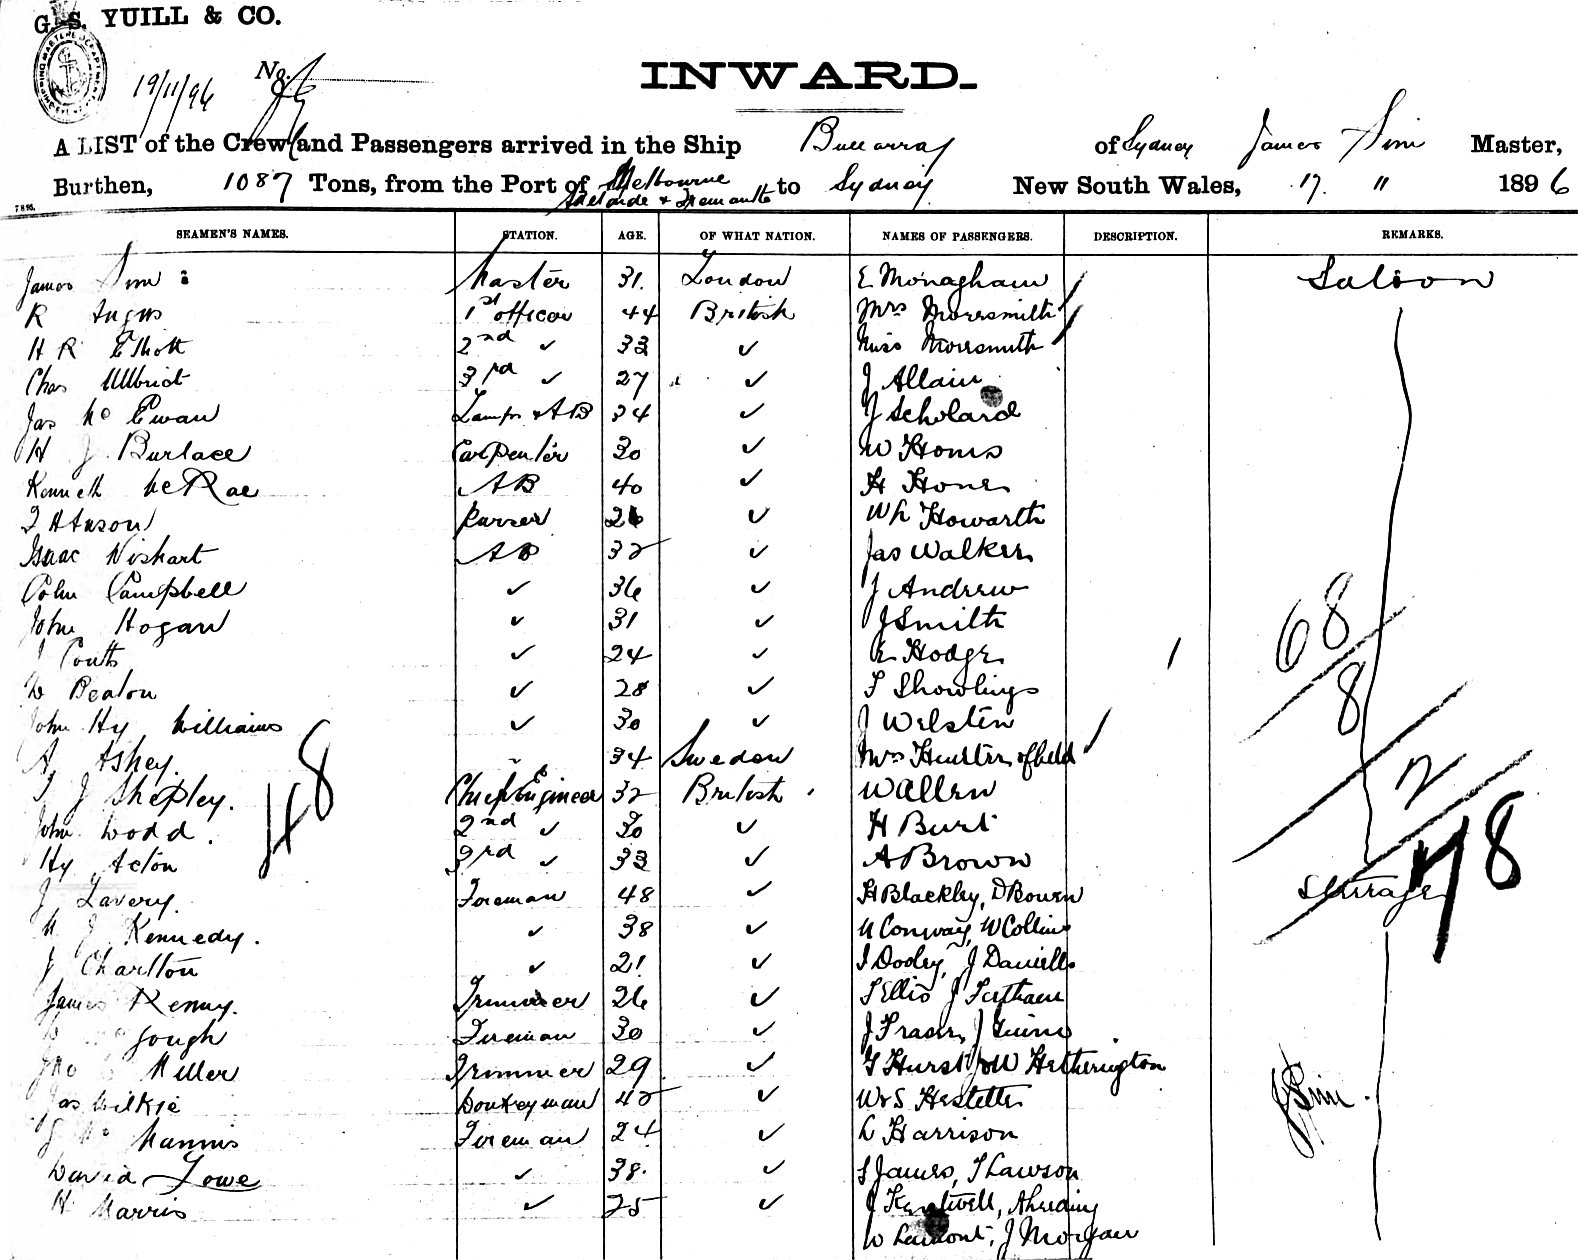 G. S. YUILL & CO.
19/11/96 No.
INWARD.
A LIST of the Crew and Passengers arrived in the Ship Bucarray of Sydney James Sim Master,
Burthen, 1087 Tons, from the Port of Melbourne Adelaide & Fremantle to Sydney New South Wales, 17 " 1896
7895.
SEAMEN'S NAMES. STATION. AGE. OF WHAT NATION. NAMES OF PASSENGERS. DESCRIPTION. REMARKS.
James Sim Master 31. London E Monagham Saloon
R Angus 1st officer 44 British Mrs Moorsmith
H R Elliott 2nd ✓ 33 ✓ Miss Moorsmith
Chas Ullbrict 3rd ✓ 27 ✓ J Allain
Jas Mc Ewan Lamps & AB 34 ✓ J Scholard
H J Burlace Carpenter 30 ✓ W Homs
Kenneth McRae AB 40 ✓ H Hones
Purser 26 ✓ Wh Howarth
Isaac Wishart AB 32 ✓ Jas Walker
Colin Campbell ✓ 36 ✓ J Andrew
John Hogan ✓ 31 ✓ J Smith
J Coutts ✓ 24 ✓ E Hodge
D Beaton ✓ 28 ✓ T Showlings
John Hy Williams ✓ 30 ✓ J Welsten
A Ashey. 34 Sweden Mrs
T J Shepley. Chief Engineer 32 British W Allen
John Wood. 2nd ✓ 30 ✓ H Burt
Hy Acton 3rd ✓ 33 ✓ A Brown
J Lavery. Fireman 48 ✓ H Blackley, D Bowen Steerage
M J Kennedy. ✓ 38 ✓ M Conway, W Collins
J Charlton ✓ 21 ✓ J Dooley, J Daniells
James Kenny. Trimmer 26 ✓ T Ellis J Feetham
Gough Fireman 30 ✓ J Fraser, J Guinn
Jno Miller Trimmer 29 ✓ G Hurst, W Hetherington
Jas Wilkie Donkeyman 42 ✓ W & S Hestetter J Sim.
J Mc Mannis Fireman 24 ✓ L Harrison
David Lowe ✓ 38. ✓ S James, T Lawson
H Marris ✓ 25 ✓ J Kentwell, A
W Lamont, J Morgan
48
68
8
2
78